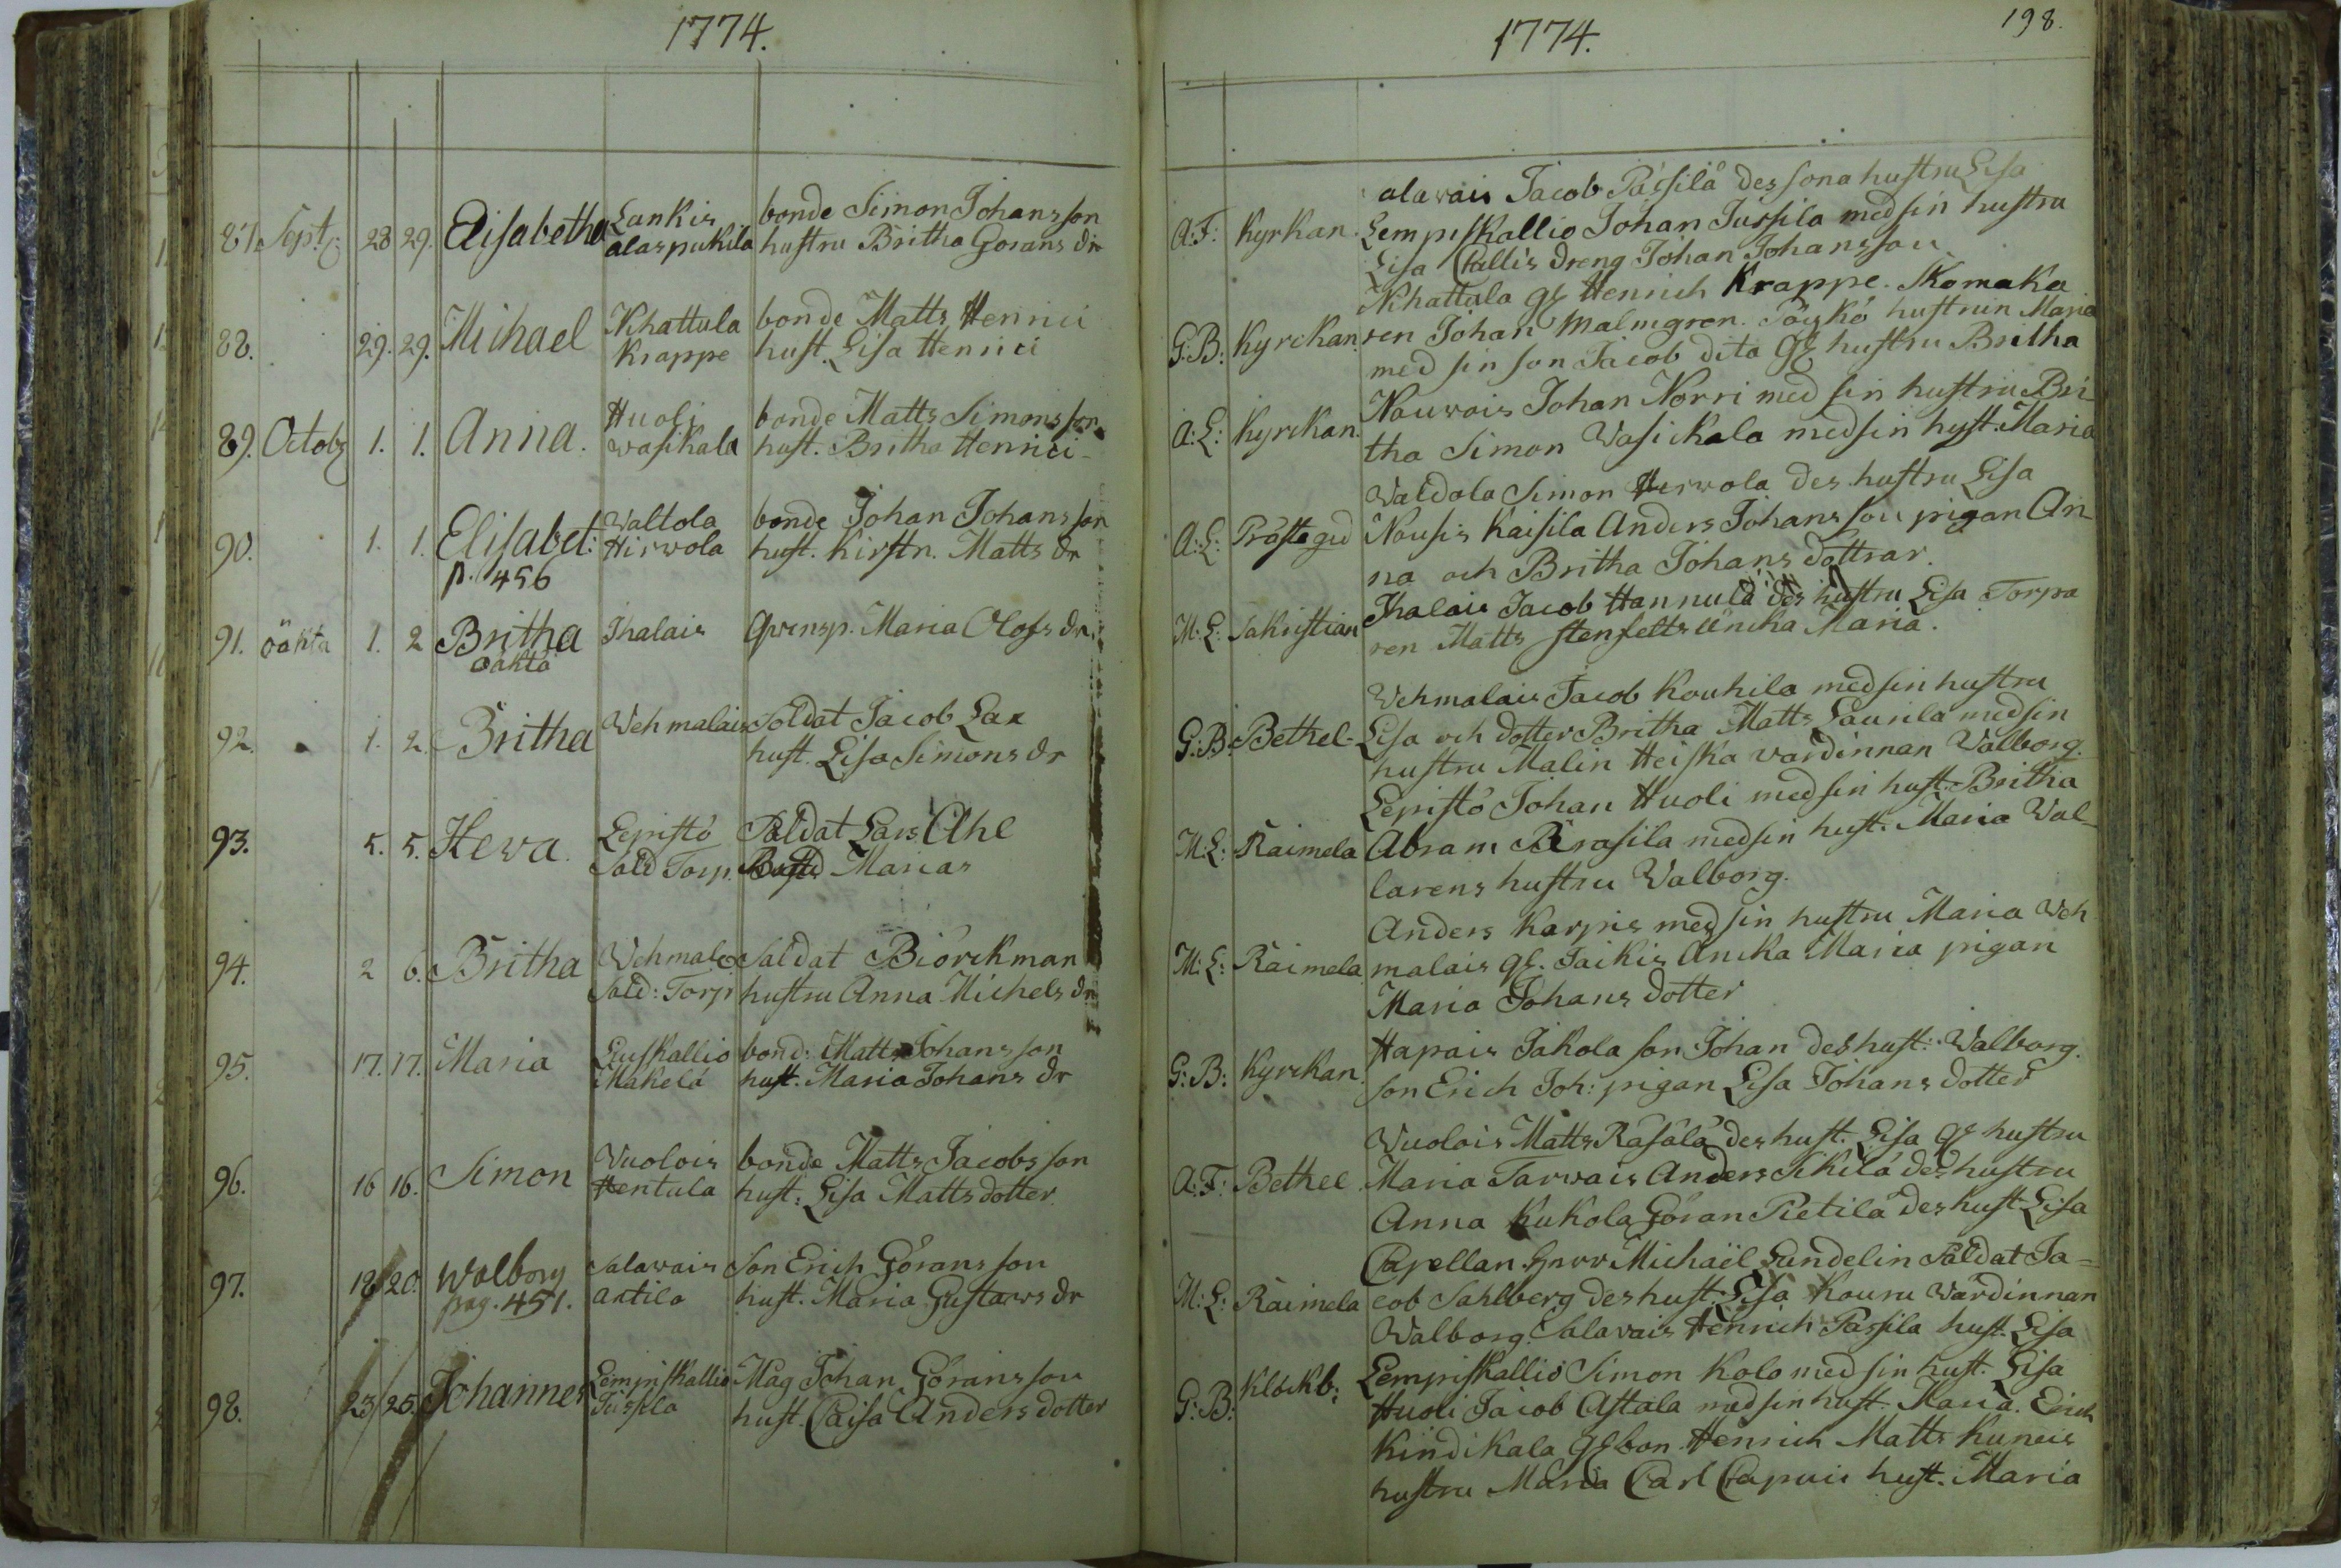 1774.
87. Sept: 28 29. Elisabetha Lankis bonde Simon Johansson
alaspukila hustru Britha Görans dr
88. 29. 29. Michael Khattula bonde Matts Henrici
Krappe hust. Lisa Henrici
89. Octob 1. 1. Anna. Huoli bonde Matts Simonsson
wasikala hust. Britha Henrici
90. 1. 1. Elisabet: Waltola bonde Johan Johansson
Hirwola hust. Kirstn. Matts dr
p. 456
91. oäkta 1. 2 Britha Ihalais Qvinsp. Maria Olofs dr.
oäkta
92. 1. 2. Britha Wehmalais Soldat Jacob Lax
hust. Lisa Simons dr
93. 5. 5. Heva. Lepistö Soldat Lars Ahl
Sold Torp. Maria
94. 2 6. Britha Wehmal Saldat Biörckman
Sold: Torp hustru Anna Michels dr
95. 17. 17. Maria Liuskallio bond: Matts Johansson
Mäkelä hust. Maria Johans dr
96. 16 16. Simon Vuolois bonde Matts Jacobsson
Hentula hust: Lisa Mattsdotter
97. 18 20. Walborg Salavais Son Erich Göransson
pag. 451. Antila hust. Maria Gustaws dr
98. 23 25. Johannes Lempiskallio Måg Johan Göransson
Jussila hust. Caisa Andersdotter
1774. 198.
alavais Jacob Pässilä des sona hustru Lisa
A: F: Kyrkan. Lempiskallio Johan Jussila med sin hustru
Lisa Callis dreng Johan Johansson
Khattula gl Henrich Krappe. Skomaka
G: B: Kyrckan. ren Johan Malmgren. hustrun Maria
med sin son Jacob dito gl hustru Britha
Nouwois Johan Norri med sin hustru Bri-
A: L: Kyrckan. tha Simon Vasickala med sin hust. Maria
Waldola Simon Herwola des hustru Lisa
A: L: Prästegd Nousis Kaisila Anders Johansson pigan An-
na och Britha Johans dottrar.
M: L: Sakristian Ihalais Jacob Hannula des hustru Lisa Torpa
ren Matts Stenfelts Maria.
Wehmalais Jacob Kouhila med sin hustru
G: B: Bethel- Lisa och dotter Britha Matts Laurila med sin
hustru Malin Heiska värdinnan Valborg.
Lepistö Johan Huoli med sin hust. Britha
M: L: Raimela Abram Pirasila med sin hust. Maria Wal-
larens hustru Walborg.
Anders Karpis med sin hustru Maria Weh
M: L: Raimela malais gl. Jaikis Anika Maria pigan
Maria Johans dotter
Hapais Jakola son Johan des hust: Walborg.
G: B: Kyrckan. son Erich Joh: pigan Lisa Johans dotter
Vuolois Matts Räsälä des hust. Lisa gl hustru
A: F: Bethel Maria Tarvais Anders Sikilä des hustru
Anna Kukola Göran Pietilä des hust Lisa
Capellan. Herr Michaël Sundelin Saldat Ja=
M: L: Raimela cob Sahlberg des hust Lisa Kouru Värdinnan
Walborg. Salavais Henrich Passila hust. Lisa
G: B: Klåckb: Lempiskallio Simon Kolo med sin hust. Lisa
Huoli Jacob Astala med sin hust. Maria. Erich
Kindikala gl bon Henrich Matts Kuneis
hustru Maria Carl Capuis hust. Maria